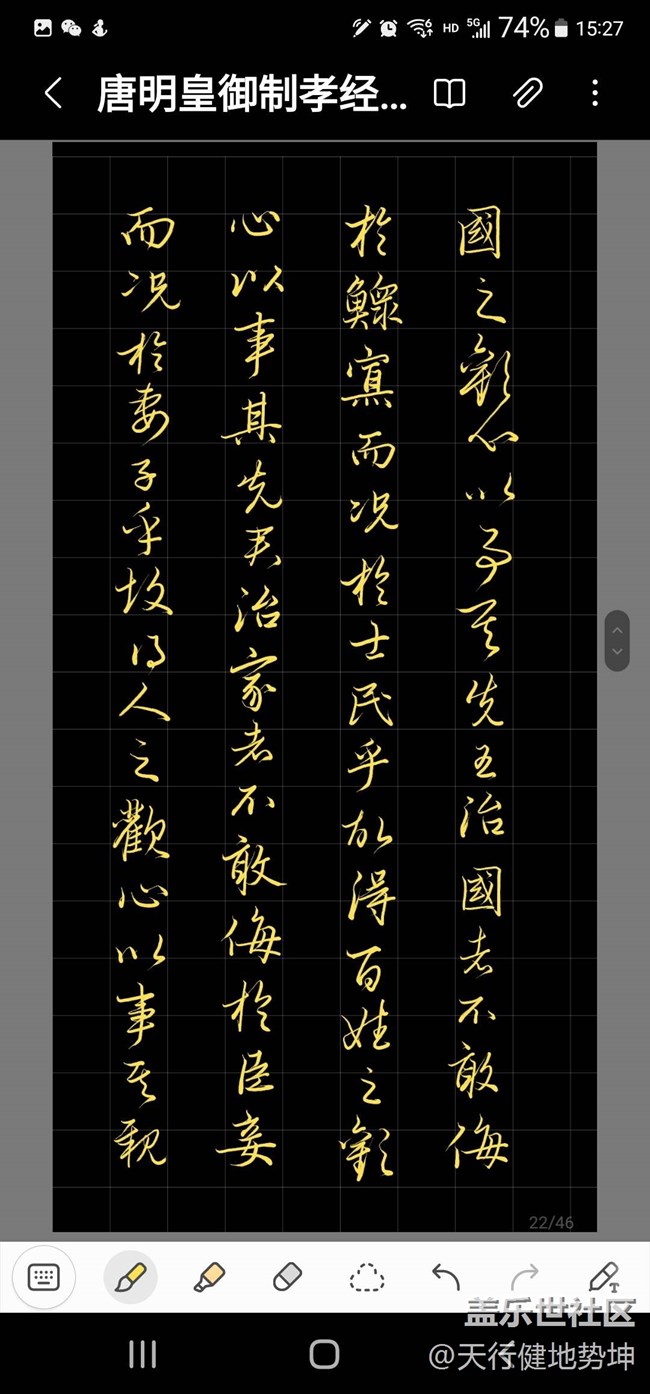 HD 5G 74% 15:27
唐明皇御制孝经...
國之歡心以事其先王治國者不敢侮
於鰥寡而况於士民乎故得百姓之歡
心以事其先君治家者不敢侮於臣妾
而况於妻子乎故得人之歡心以事其親
22/46
T
盖乐世社区
@天行健地势坤